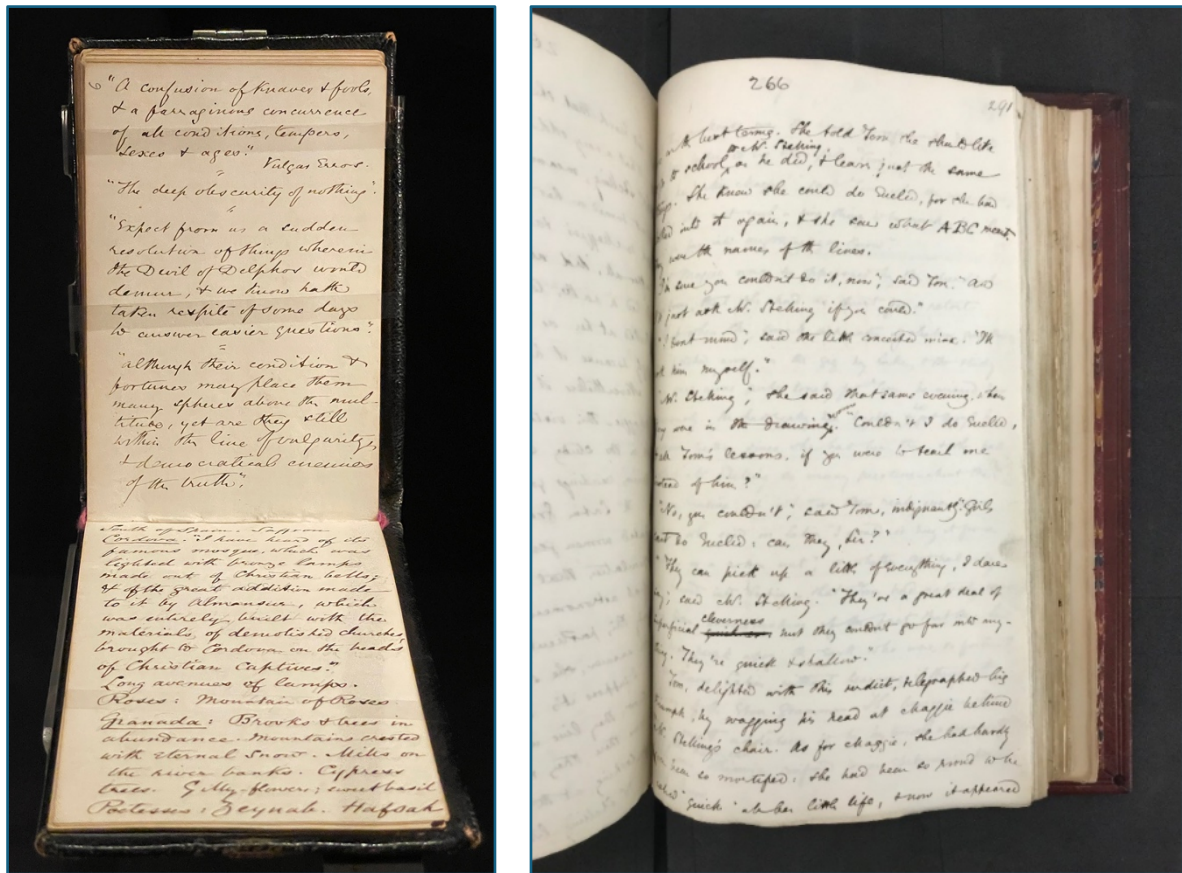 6 "A confusion of knaves & fools,
& a farraginous concurrence
of all conditions, tempers,
sexes & ages."
Vulgar Errors.
"The deep obscurity of nothing".
"Expect from us a sudden
resolution of things wherein
the Devil of Delphos would
demur, & we know hath
taken respite of some days
to answer easier questions".
"although their condition &
fortunes may place them
many spheres above the mul-
titude, yet are they still
within the line of vulgarity,
& democratical enemies
of the truth".
South of Spain
Cordova: "I have heard of its
famous mosque, which was
lighted with bronze lamps
made out of Christian bells;
& of the great addition made
to it by Almansur, which
was entirely built with the
materials of demolished churches,
brought to Cordova on the heads
of Christian Captives."
Long avenues of lamps.
Roses: Mountain of Roses
Granada: Brooks & trees in
abundance. Mountains crested
with eternal Snow. Mills on
the river banks. Cypress
trees. Gilly-flowers; sweet basil
Poetesses: Zeynab. Hafsah
266
291
best terms. She told Tom she should like
to Mr. Stelling,
to school, as he did, & learn just the same
She knew she could do Euclid, for she had
into it again, & she saw what ABC meant:
were the names of the lines.
sure you couldn't do it, now," said Tom, "and
just ask Mr. Stelling if you could."
"I don't mind," said the little conceited minx. "I'll
him myself."
Mr. Stelling," she said that same evening, when
were in the drawing "Couldn't I do Euclid,
Tom's lessons, if you were to teach me
instead of him?"
"No, you couldn't," said Tom, indignantly. "Girls
can't do Euclid: can they, Sir?"
"They can pick up a little of everything, I dare
said Mr. Stelling. "They've a great deal of
cleverness
superficial but they couldn't go far into any-
They're quick & shallow."
Tom, delighted with this verdict, telegraphed his
by wagging his head at Maggie behind
Mr. Stelling's chair. As for Maggie, she had hardly
been so mortified: she had been so proud to be
"quick" all her little life, & now it appeared